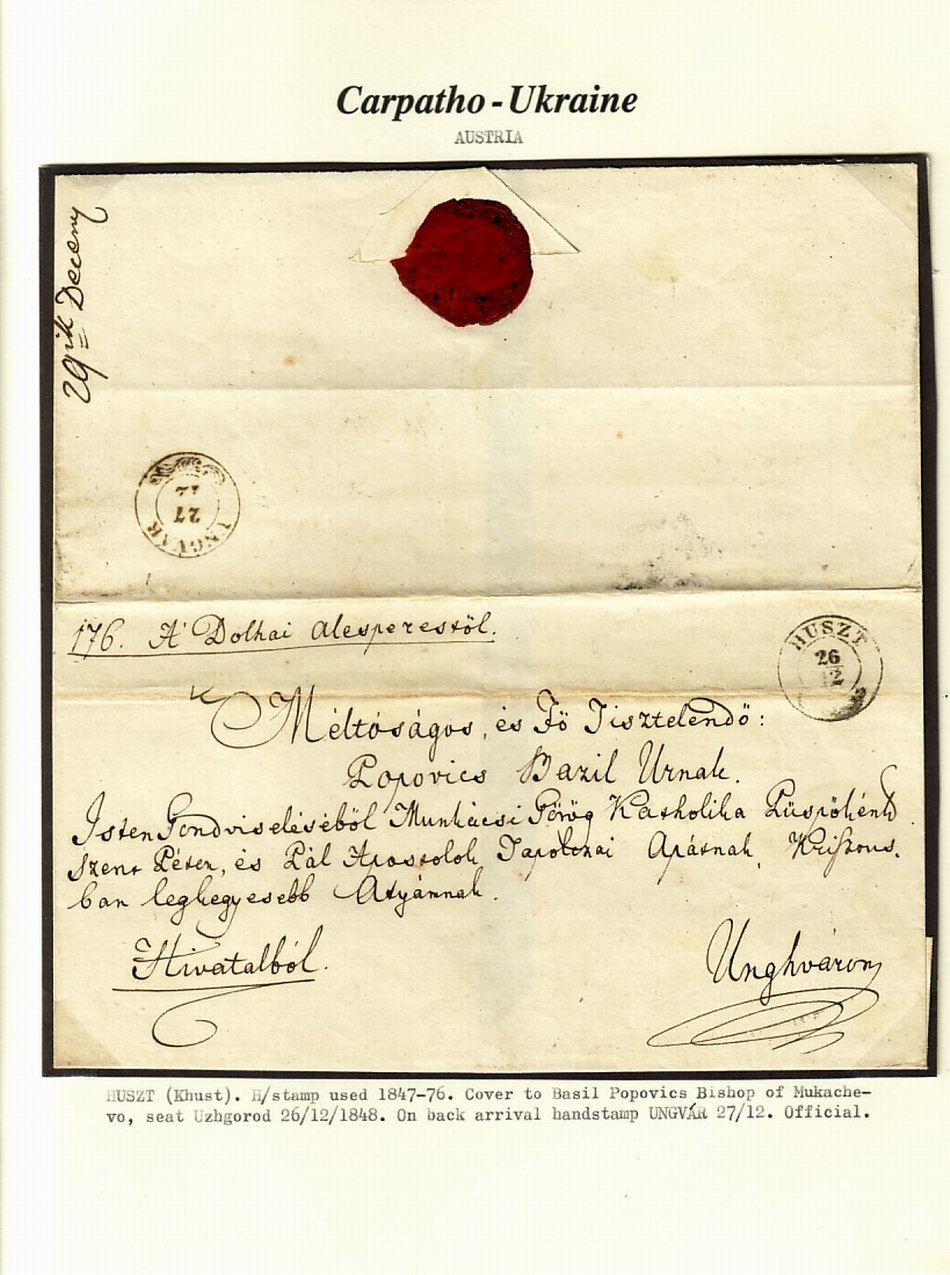 Carpatho-Ukraine
AUSTRIA
29ik Deceny
UNGVÁR
27
12
176. A' Dolhai alesperestöl.
HUSZT
26
12
Méltóságos, és Fö Tisztelendö:
Popovics Bazil Urnak.
Isten Gondviseléséböl Munkácsi Görög Katholika Püspökének
Szent Péter, és Pál Apostolok Tapolczai Apátnak, Krisztus.
ban legkegyesebb Atyámnak.
Hivatalból.
Unghváron
HUSZT (Khust). H/stamp used 1847-76. Cover to Basil Popovics Bishop of Mukache-
vo, seat Uzhgorod 26/12/1848. On back arrival handstamp UNGVÁR 27/12. Official.